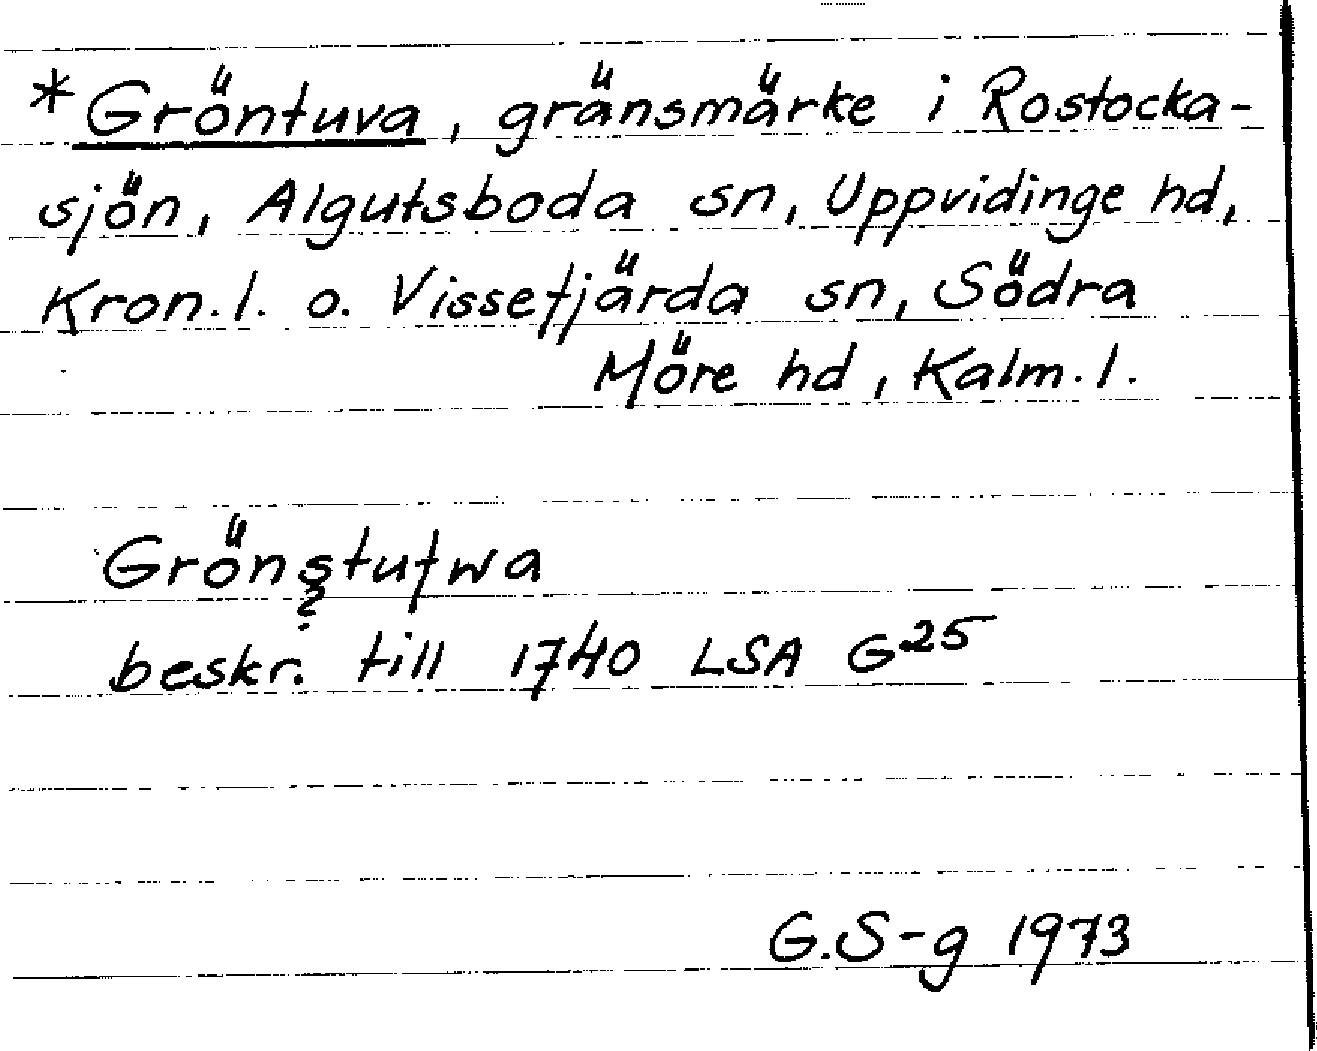 *Gröntuva, gränsmärke i Rostocka-
sjön, Algutsboda sn, Uppvidinge hd,
Kron.l. o. Vissefjärda sn, Södra
Möre hd, Kalm.l.
Grönstufwa
?
beskr. till 1740 LSA G25
G.S-g 1973